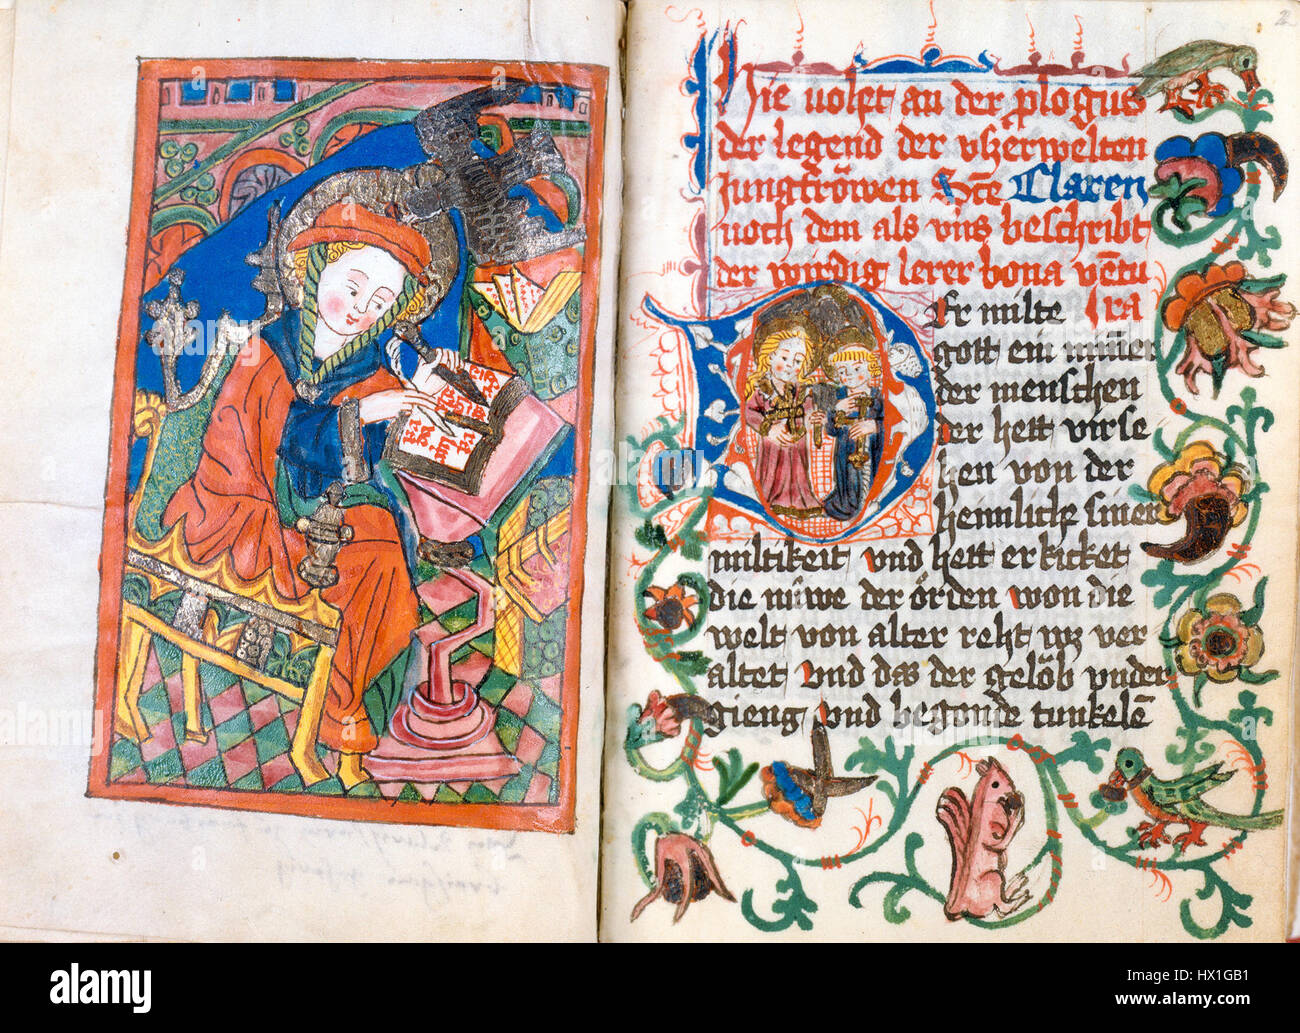 2
Hie volget an der prologus
der legend der vszerwelten
Jungfröwen Scte Claren
noch dem als vns beschribt
der wirdig lerer bona ventu
ra
Er milte
gott ein minner
der menschen
der hett virse
hen von der
heimlichz siner
miltikeit vnd hett erkicket
die nüwe der örden won die
welt von alter reht wz ver
altet vnd das der gelöb vnder
gieng vnd begonde tunkelē
alamy
alamy
Image ID: HX1GB1
www.alamy.com